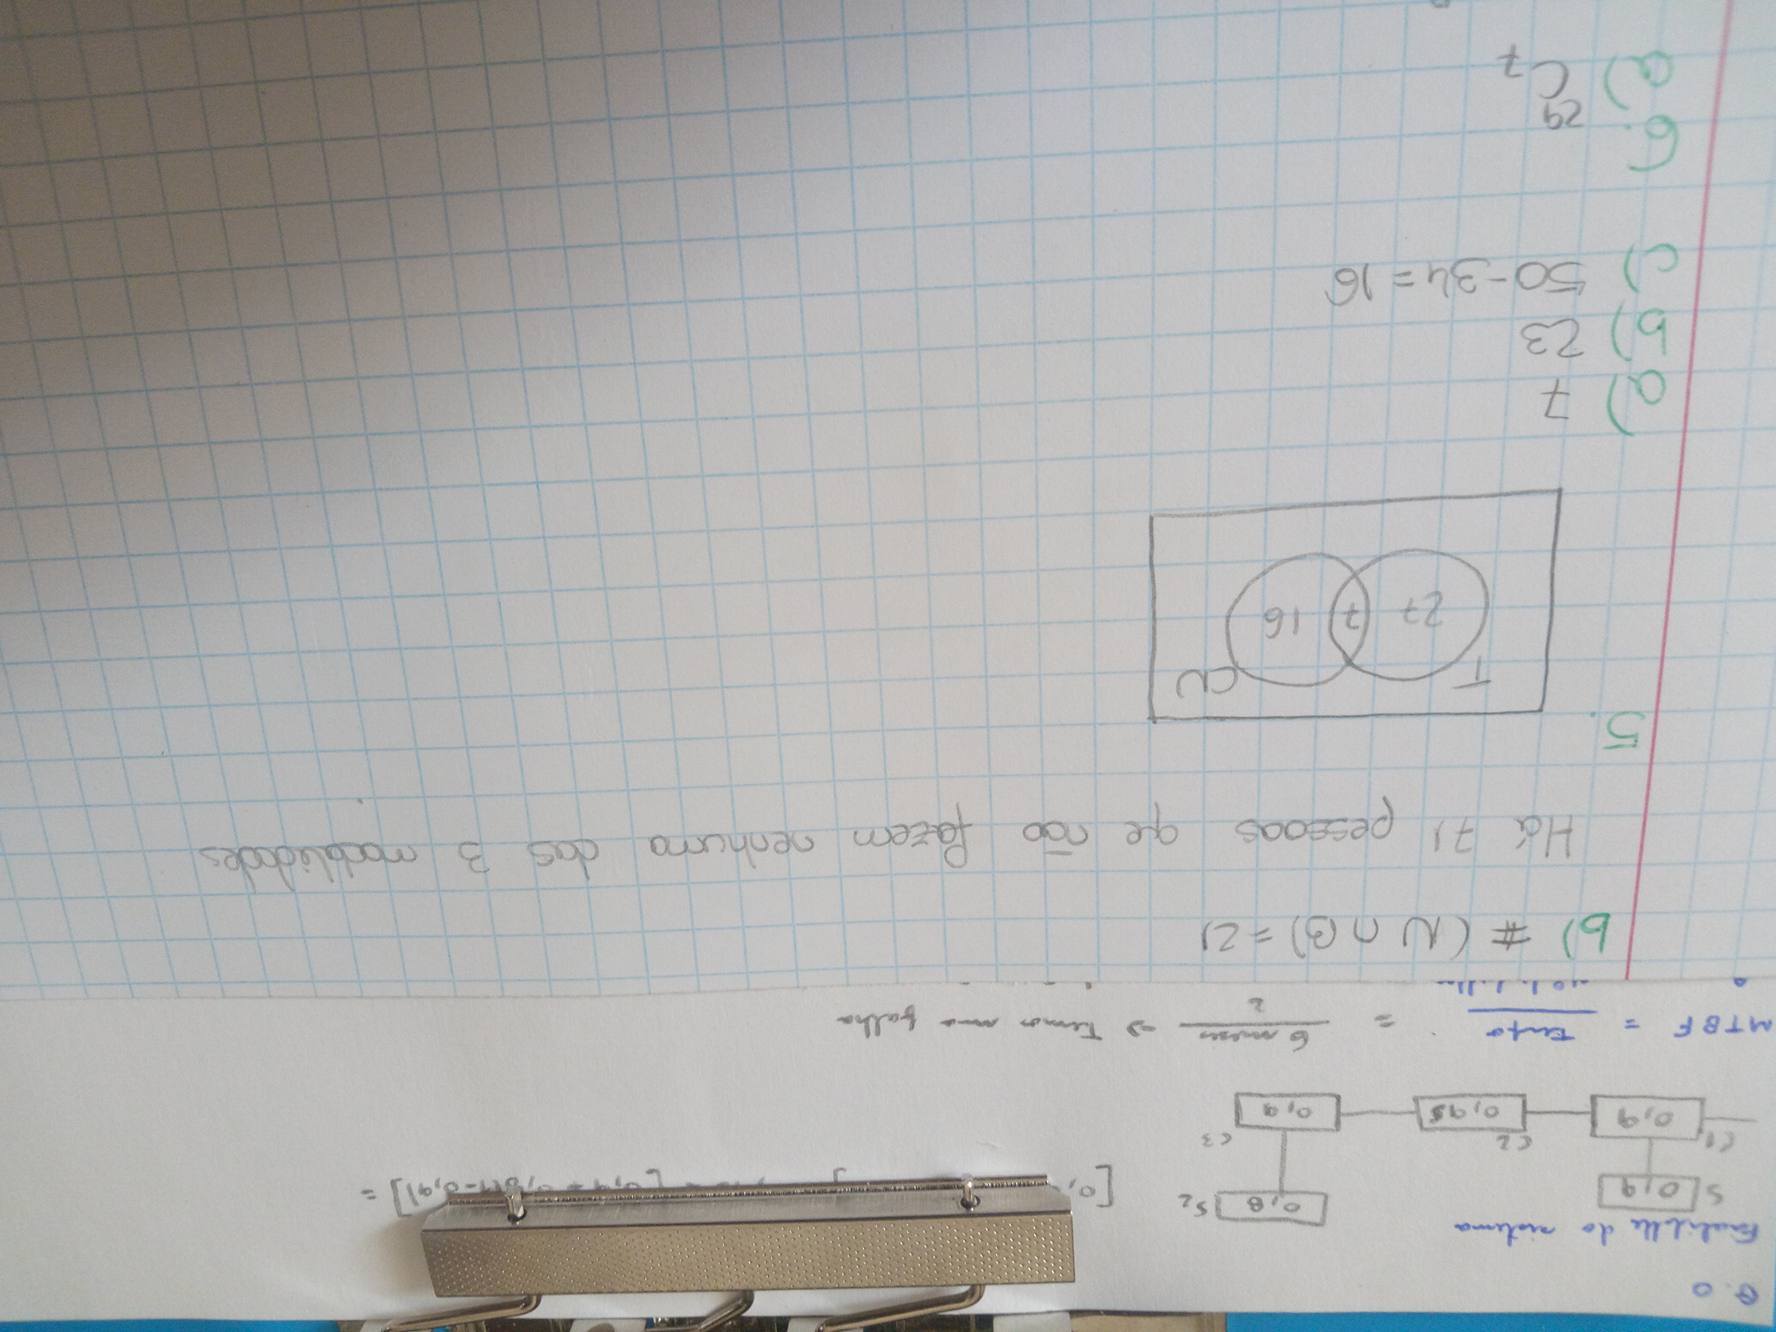 G.O
do sistema
S 0,9
0,8 S2
[0,
0,9)] =
C1 0,9
C2 0,95
C3 0,9
MTBF = Tempo = 6 meses → Temos uma falha
2
b) # (N ∩ B) = 21
Há 71 pessoas qe não fazem nenhuma das 3 modalidades
5.
T CN
27 7 16
a) 7
b) 23
c) 50-34=16
6.
a) 29C7